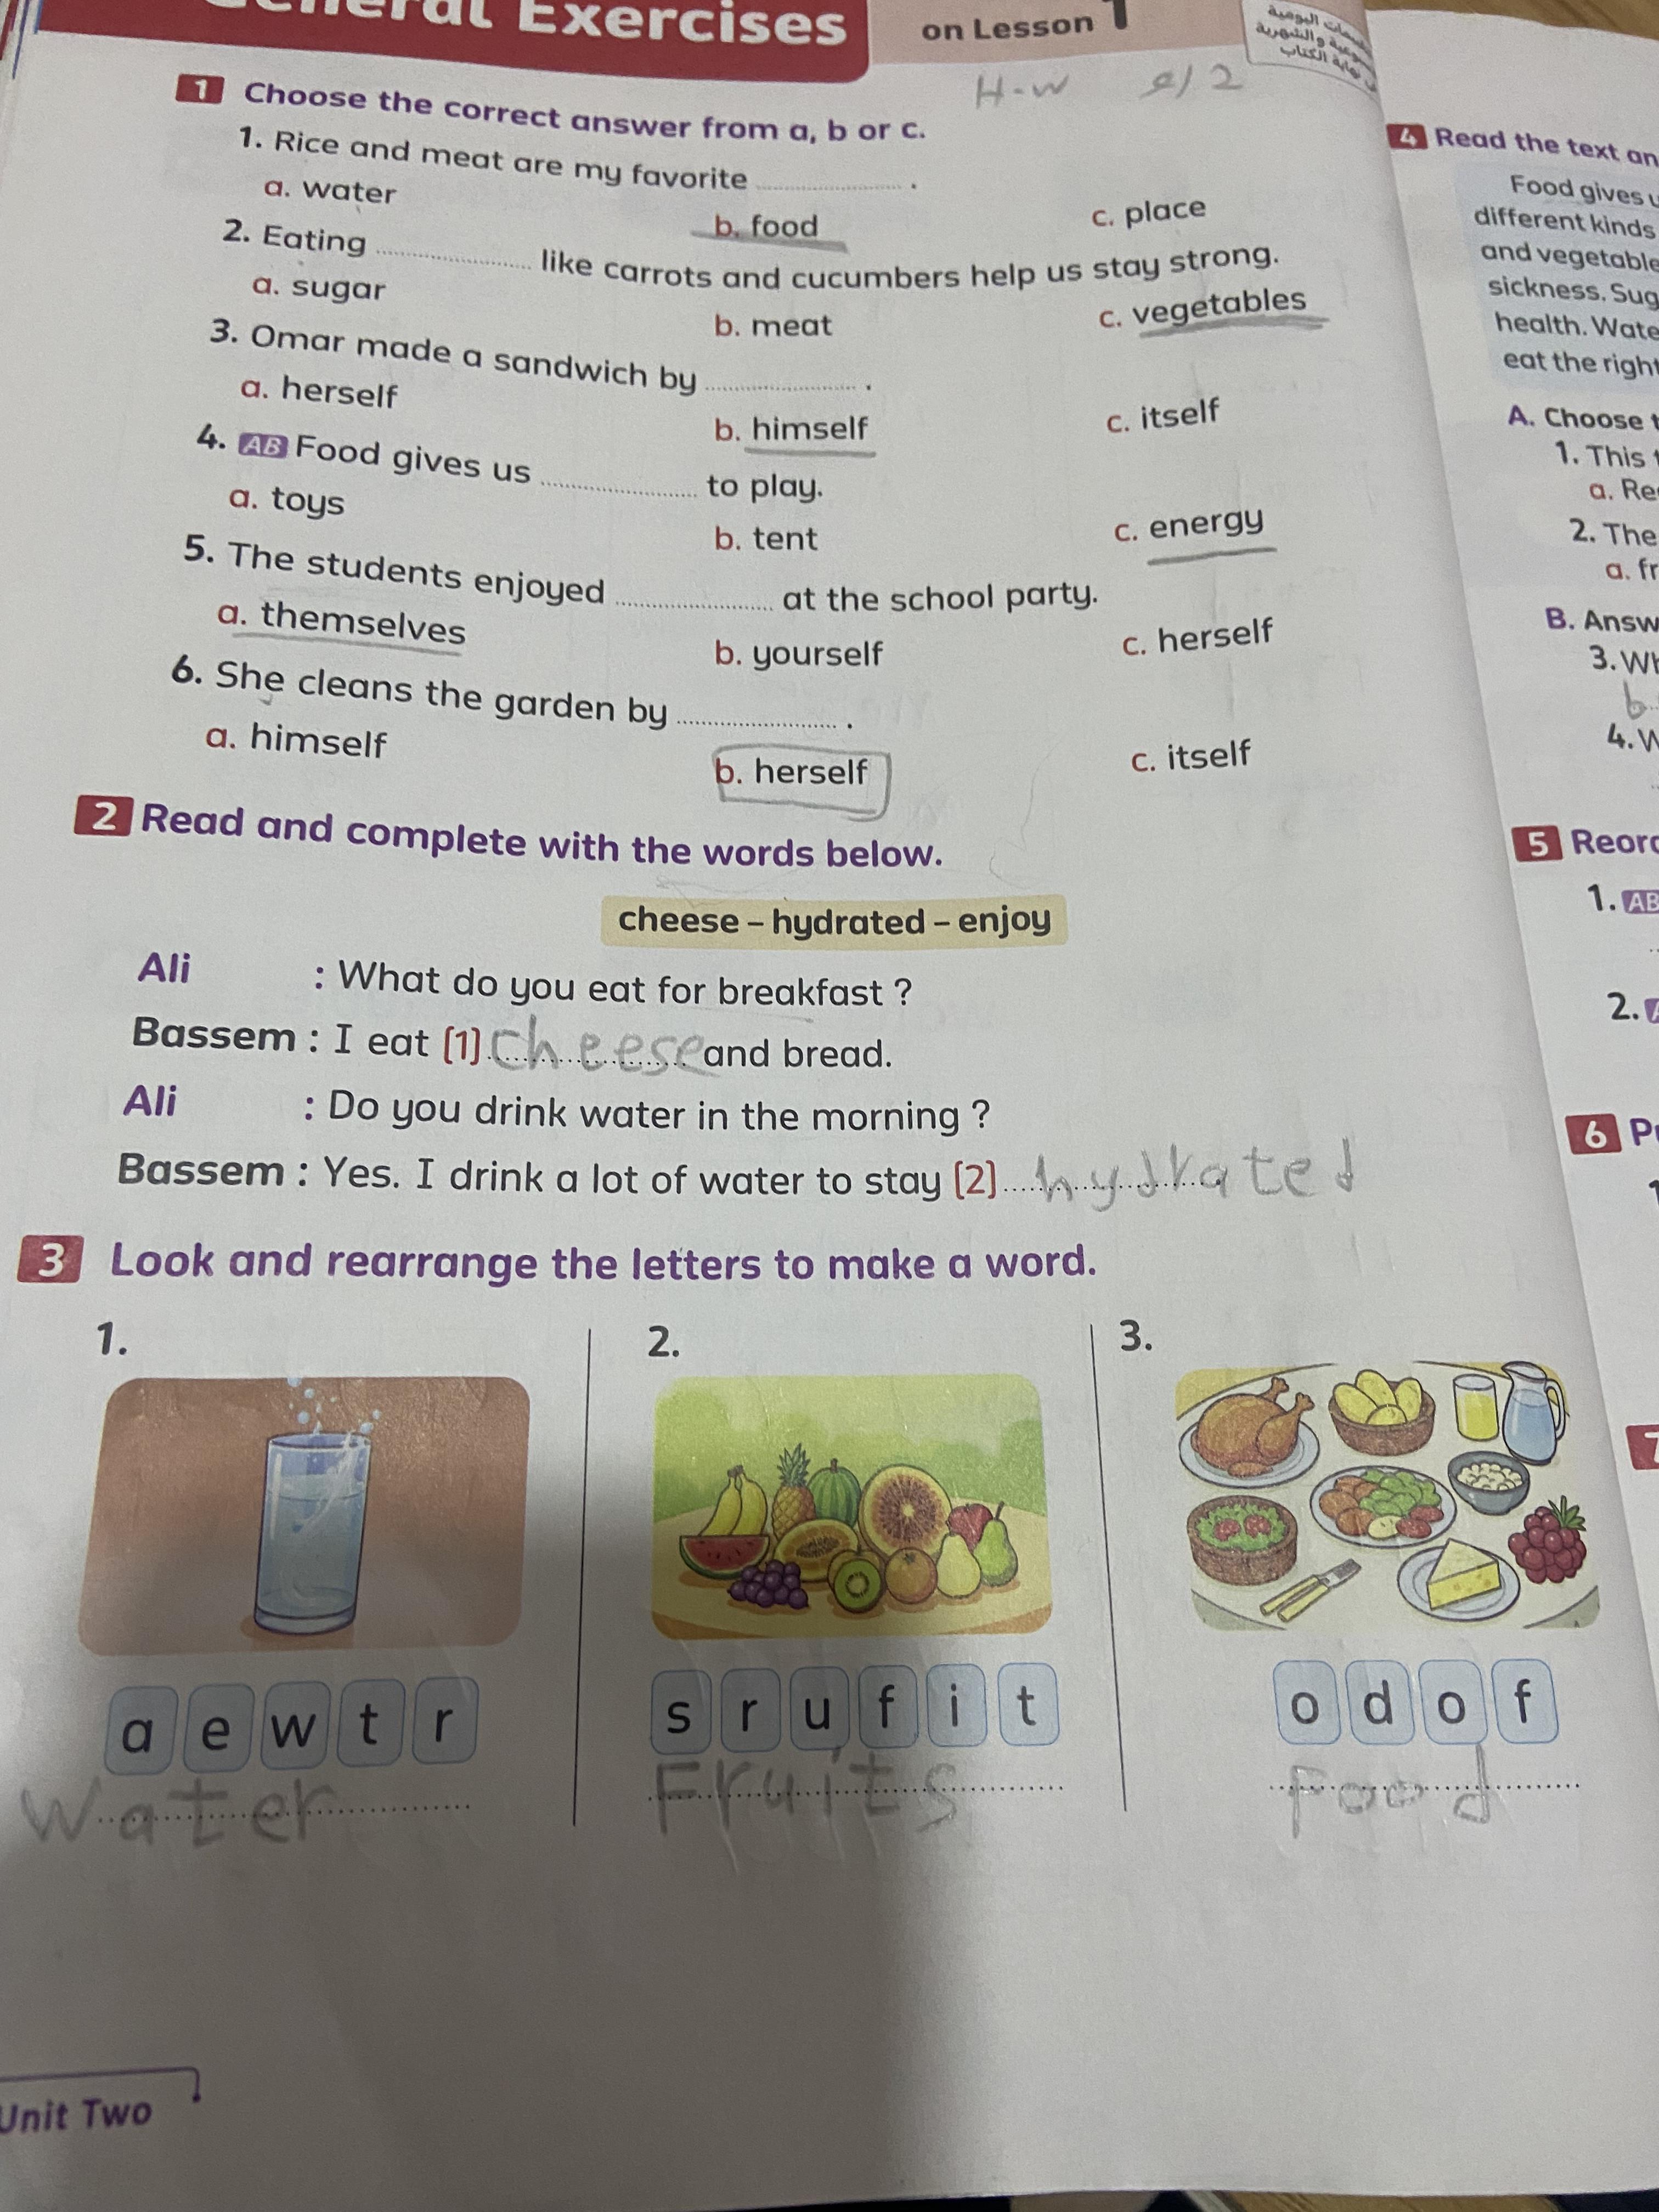 General Exercises on Lesson 1
اليومية
والشهرية
نهاية الكتاب
H-w 2/2
1 Choose the correct answer from a, b or c.
1. Rice and meat are my favorite .
a. water b. food c. place
2. Eating like carrots and cucumbers help us stay strong.
a. sugar b. meat c. vegetables
3. Omar made a sandwich by .
a. herself b. himself c. itself
4. AB Food gives us to play.
a. toys b. tent c. energy
5. The students enjoyed at the school party.
a. themselves b. yourself c. herself
6. She cleans the garden by .
a. himself b. herself c. itself
2 Read and complete with the words below.
cheese – hydrated – enjoy
Ali : What do you eat for breakfast ?
Bassem : I eat (1) cheese and bread.
Ali : Do you drink water in the morning ?
Bassem : Yes. I drink a lot of water to stay (2) hydrated
3 Look and rearrange the letters to make a word.
1. 2. 3.
a e w t r s r u f i t o d o f
Water Fruits Food
Unit Two
4 Read the text an
Food gives u
different kinds
and vegetable
sickness. Sug
health. Wate
eat the right
A. Choose t
1. This t
a. Re
2. The
a. fr
B. Answ
3. Wh
b
4. W
5 Reord
1. AB
2.
6 Pu
1
7